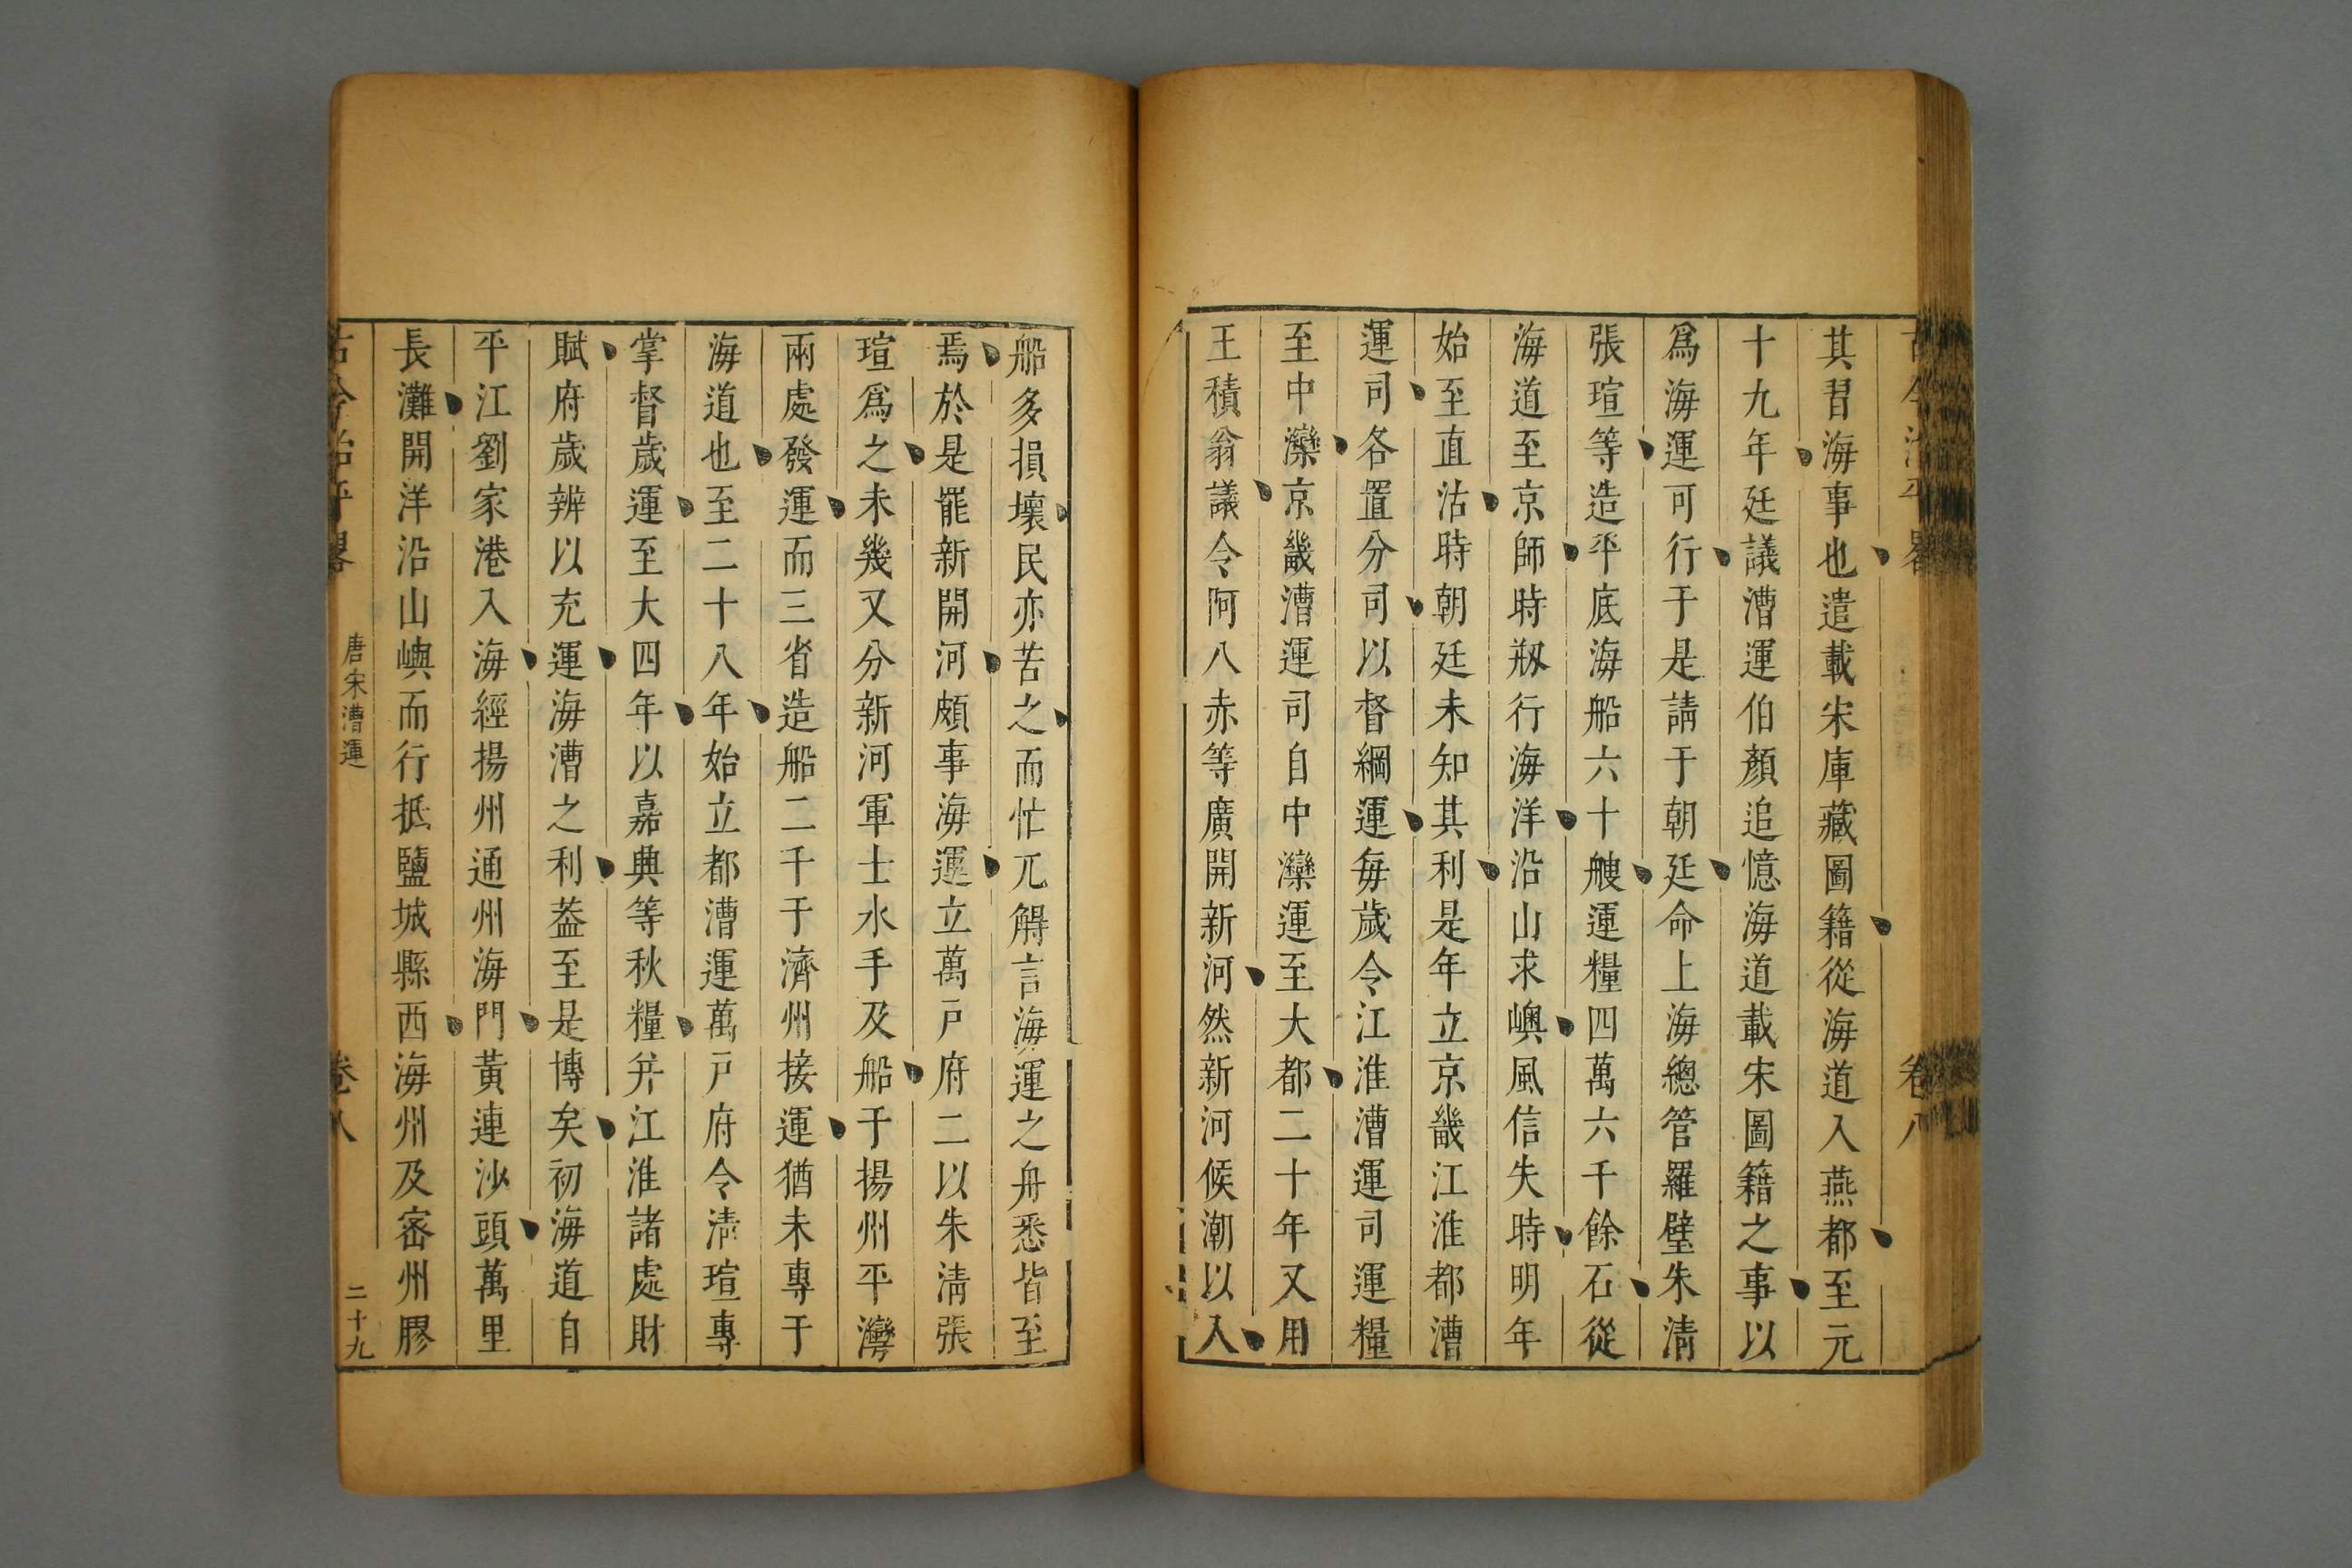 其習海事也遣載宋庫藏圖籍從海道入燕都至元
十九年廷議漕運伯顏追憶海道載宋圖籍之事以
爲海運可行于是請于朝廷命上海總管羅璧朱清
張瑄等造平底海船六十艘運糧四萬六千餘石從
海道至京師時剏行海洋沿山求嶼風信失時明年
始至直沽時朝廷未知其利是年立京畿江淮都漕
運司各置分司以督綱運每歲令江淮漕運司運糧
至中灤京畿漕運司自中灤運至大都二十年又用
王積翁議令阿八赤等廣開新河然新河候潮以入
船多損壞民亦苦之而忙兀觧言海運之舟悉皆至
焉於是罷新開河頗事海運立萬戸府二以朱清張
瑄爲之未幾又分新河軍士水手及船于揚州平灣
兩處發運而三省造船二千于濟州接運猶未專于
海道也至二十八年始立都漕運萬戸府令清瑄專
掌督歲運至大四年以嘉典等秋糧并江淮諸處財
賦府歲辨以充運海漕之利葢至是博矣初海道自
平江劉家港入海經揚州通州海門黃連沙頭萬里
長灘開洋沿山嶼而行抵鹽城縣西海州及密州膠
古今治平畧
唐宋漕運
卷八
二十九